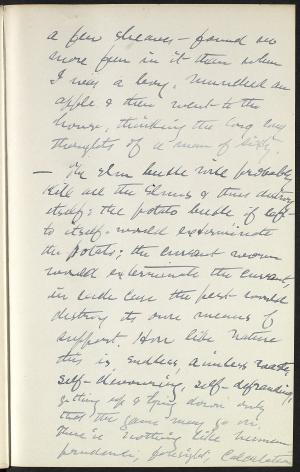 a few sheaves — found no
more fun in it than when
I was a boy, munched an
apple & then went to the
house, thinking the long long
thoughts of a man of sixty.
— The elm beetle will probably
kill all the elms & thus destroy
itself: the potato beetle if left
to itself would exterminate
the potato; the currant worm
would exterminate the currant,
in each case the pest would
destroy its own means of
support. How like Nature
this is, endless, aimless
self-devouring, self-defrauding,
getting up & lying down only
that the game may go on.
There is nothing like human
prudence, foresight, calculation